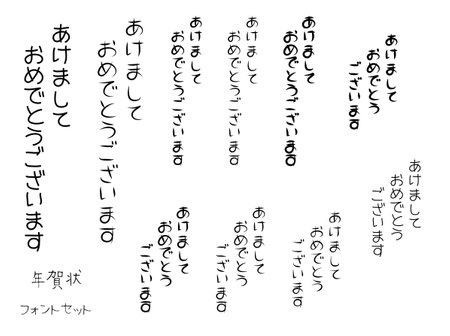 あけまして
おめでとう
ございます
あけまして
おめでとうございます
あけまして
おめでとうございます
あけまして
おめでとうございます
あけまして
おめでとうございます
あけまして
おめでとうございます
あけまして
おめでとう
ございます
あけまして
おめでとう
ございます
あけまして
おめでとう
ございます
あけまして
おめでとう
ございます
年賀状
フォントセット